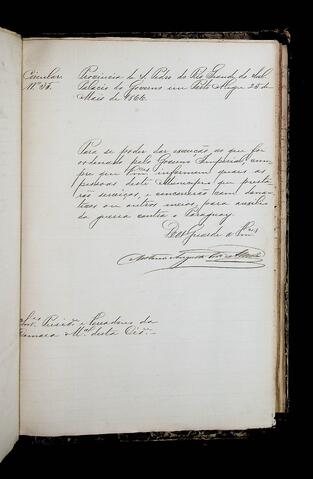 Circular Provincia de S. Pedro do Rio Grande do Sul
Nº 36. Palacio do Governo em Porto Alegre 25 de
Maio de 1866.
Para se poder dar execução ao que foi
ordenado pelo Governo Imperial, cum-
pre que Vmces informem quaes as
pessoas deste Municipio que presta-
rão serviços, e concorrerão com dona-
tivos ou outros meios, para auxilio
da guerra contra o Paraguay.
Deos Guarde a Vmces
Presides e Vereadores da
Camara Mal desta Cide